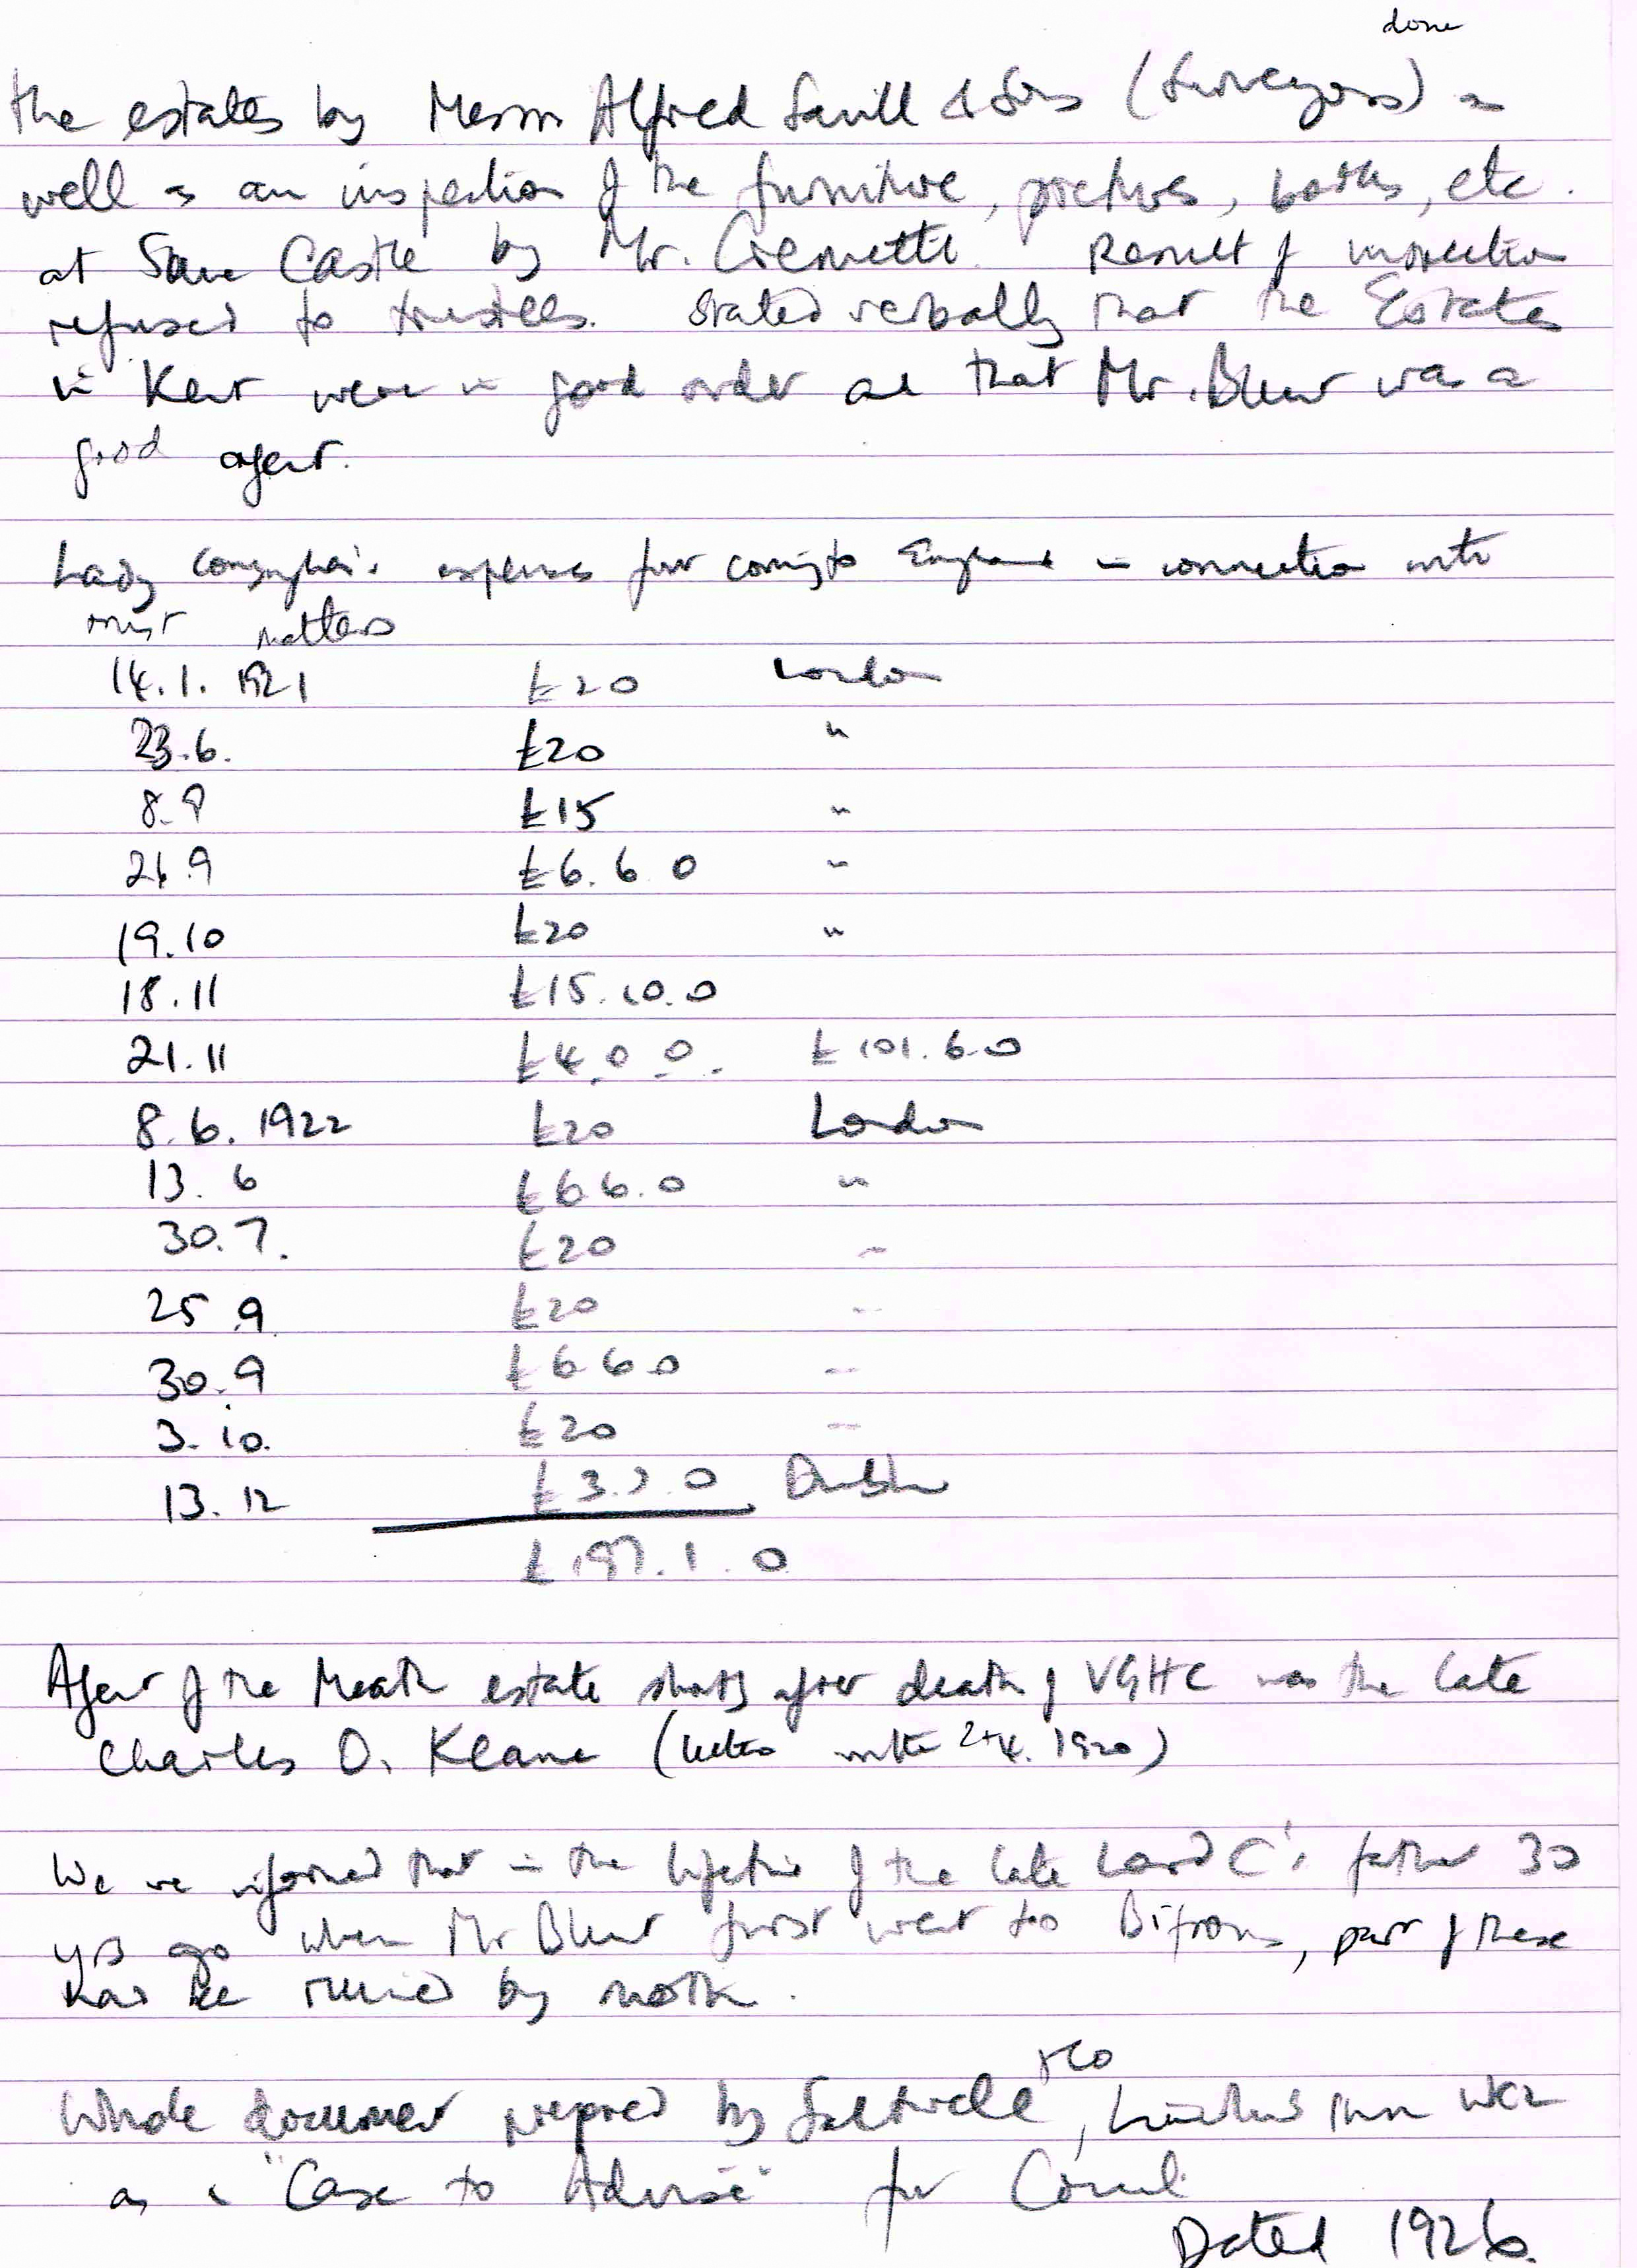 done
the estates by Messrs Alfred Savill & Sons (Surveyors) as
well as an inspection of the furniture, pictures, books, etc.
at Slane Castle by Mr. Result of inspection
refused to trustees. Stated verbally that the Estates
in Kent were in good order and that Mr. Blunt was a
good agent.
Lady Conyngham's expenses for coming to England in connection with
trust matters
14.1. 1921 £20 London
23.6. £20 "
8.9 £15 "
26.9 £6. 6 0 "
19.10 £20 "
18.11 £15.10.0
21.11 £4.0 0. £101.6.0
8.6. 1922 £20 London
13. 6 £6 6.0 "
30.7. £20 "
25.9 £20 "
30.9 £6 6 0 "
3.10. £20 "
13. 12 £3.3.0 Dublin
£197.1.0
Agent of the Meath estate shortly after death of VGHC was the late
Charles O. Keane (letter 1920)
We are informed that in the lifetime of the late Lord C's father 30
yrs ago when Mr Blunt first went to Bifrons, part of these
had be ruined by moth.
Whole document prepared by Saltwell & Co, Lincoln's Inn WC2
as a "Case to Advise" for Counsel
Dated 1926.